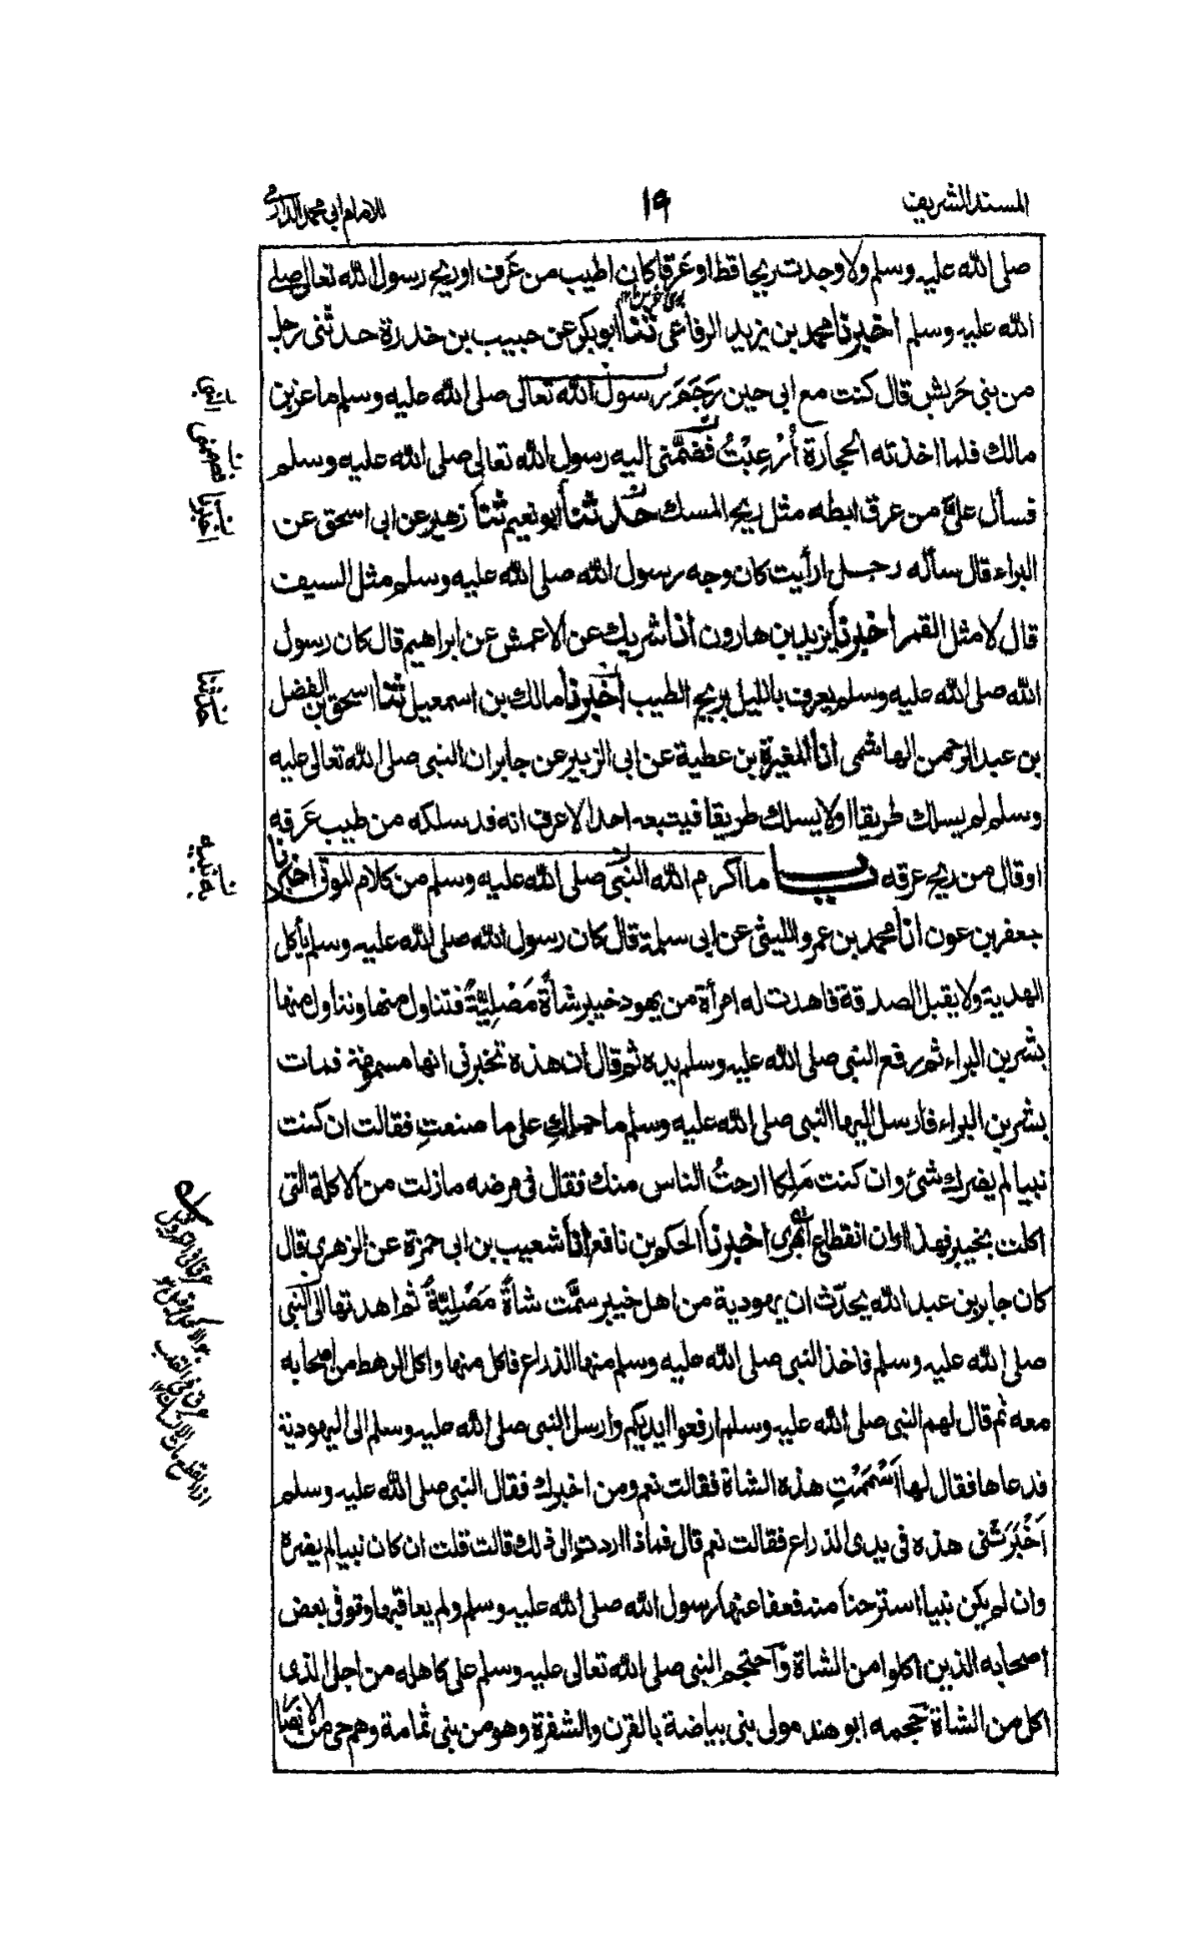 المسند الشريف
١٩
للامام ابى محمد الدارمى
صلى الله عليه وسلم ولا وجدت ريحا قط او عرقا كان اطيب من عَرف او ريح رسول الله تعالى صلى
الله عليه وسلم اخبرنا محمد بن يزيد الرفاعى ثنا ابو بكر عن حبيب بن خدرة حدثنى رجل
من بنى حَريش قال كنت مع ابى حين رَجَمَ رسول الله تعالى صلى الله عليه وسلم ماعز بن
مالك فلما اخذته الحجارة أُرْعِبْتُ فضمَّنى اليه رسول الله تعالى صلى الله عليه وسلم
فسأل علىَّ من عرق ابطه مثل ريح المسك حدثنا ابو نعيم ثنا زهير عن ابى اسحق عن
البراء قال سأله رجل ارأيت كان وجه رسول الله صلى الله عليه وسلم مثل السيف
قال لا مثل القمر اخبرنا يزيد بن هارون انا شريك عن الاعمش عن ابراهيم قال كان رسول
الله صلى الله عليه وسلم يعرف بالليل بريح الطيب اخبرنا مالك بن اسمعيل ثنا اسحق بن الفضل
بن عبد الرحمن الهاشمى انا المغيرة بن عطية عن ابى الزبير عن جابر ان النبى صلى الله تعالى عليه
وسلم لم يسلك طريقا او لا يسلك طريقا فيتبعه احد الا عرف انه قد سلكه من طيب عَرفه
او قال من ريح عرقه باب ما اكرم الله النبى صلى الله عليه وسلم من كلام الموتى اخبرنا
جعفر بن عون انا محمد بن عمرو الليثى عن ابى سلمة قال كان رسول الله صلى الله عليه وسلم يأكل
الهدية ولا يقبل الصدقة فاهدت له امرأة من يهود خيبر شأة مَصْلِيَّةً فتناول منها وتناول منها
بشر بن البراء ثم رفع النبى صلى الله عليه وسلم يده ثم قال ان هذه تخبرنى انها مسمومة فمات
بشر بن البراء فارسل اليها النبى صلى الله عليه وسلم ما حملكِ على ما صنعتِ فقالت ان كنت
نبيا لم يضرك شئ وان كنت مَلِكا ارحتُ الناس منك فقال فى مرضه مازلت من الاكلة التى
اكلت بخيبر فهذا اوان انقطاع ابهرى اخبرنا الحكم بن نافع انا شعيب بن ابى حمزة عن الزهرى قال
كان جابر بن عبد الله يحدّث ان يهودية من اهل خيبر سمَّت شاةً مَصْلِيّةً ثم اهدتها الى النبى
صلى الله عليه وسلم فاخذ النبى صلى الله عليه وسلم منها الذراع فاكل منها واكل الرهط من اصحابه
معه ثم قال لهم النبى صلى الله عليه وسلم ارفعوا ايديكم وارسل النبى صلى الله عليه وسلم الى اليهودية
فدعاها فقال لها اَسَمَمْتِ هذه الشاة فقالت نعم ومن اخبرك فقال النبى صلى الله عليه وسلم
اَخْبَرَتْنى هذه فى يدى الذراع فقالت نعم قال فماذا اردتِ الى ذلك قالت قلت ان كان نبيا لم يضره
وان لم يكن نبيا استرحنا منه فعفا عنها رسول الله صلى الله عليه وسلم ولم يعاقبها وتوفى بعض
اصحابه الذين اكلوا من الشاة واحتجم النبى صلى الله تعالى عليه وسلم على كاهله من اجل الذى
اكل من الشاة حجمه ابو هند مولى بنى بياضة بالقرن والشفرة وهو من بنى ثمامة وهم حى من الانصار
اخبرنا
حدثنا